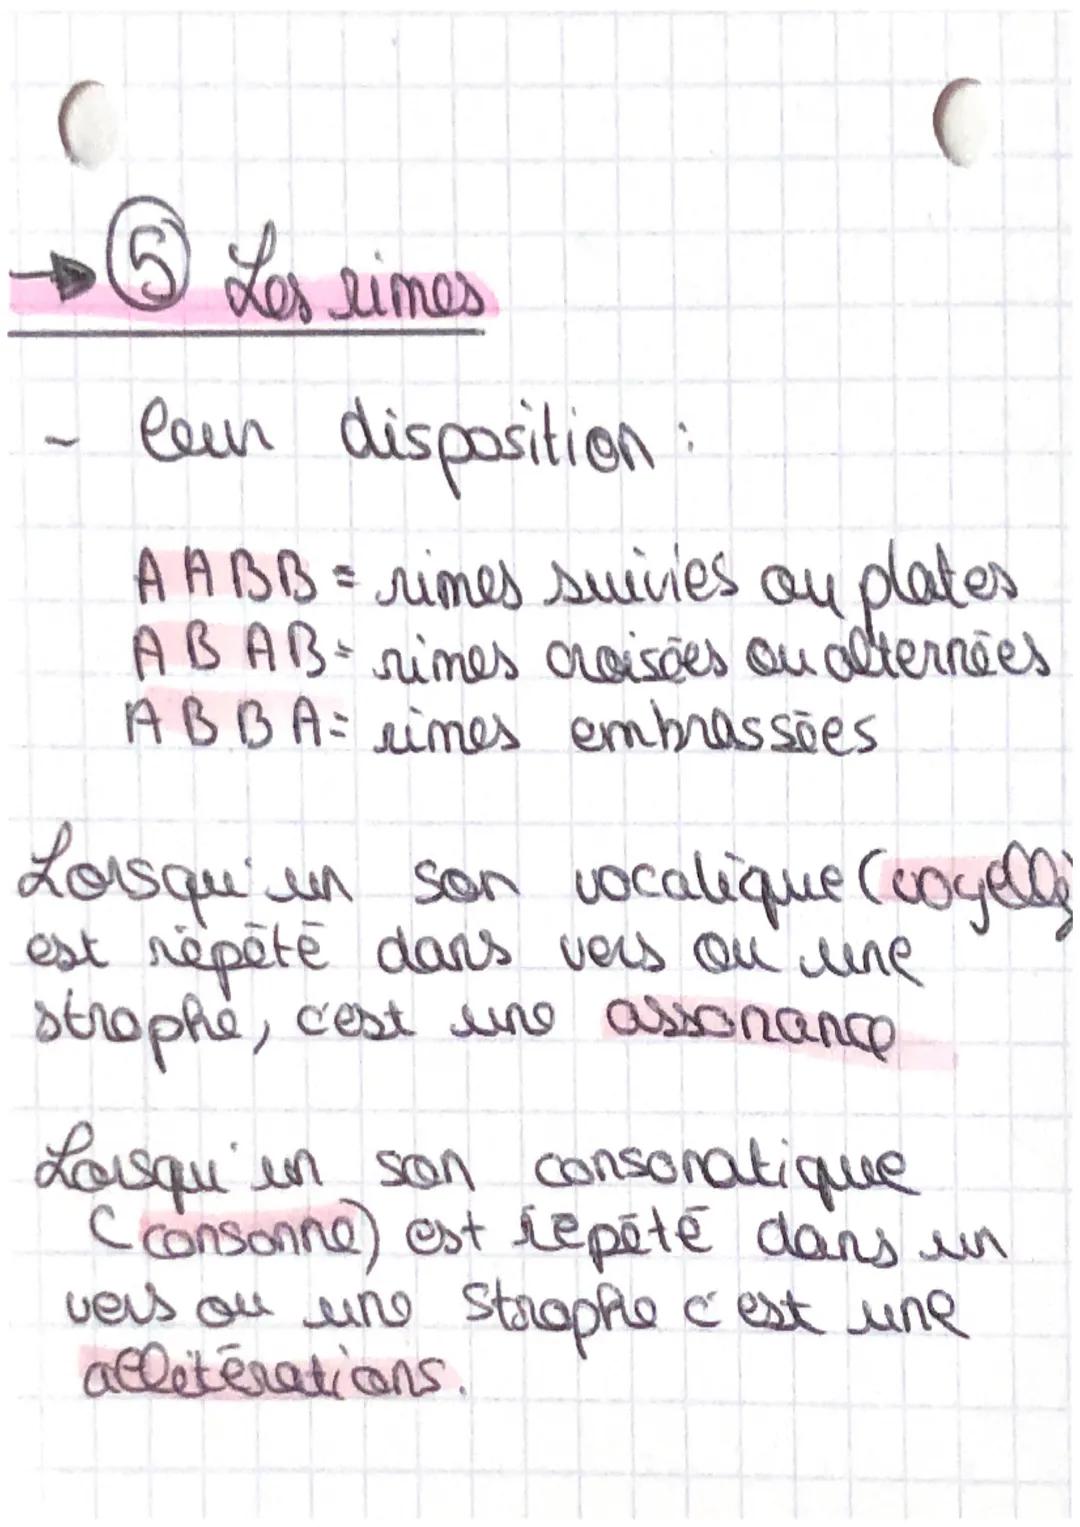 → ⑤ Les rimes
- leur disposition :
AABB = rimes suivies ou plates
ABAB = rimes croisées ou alternées
ABBA = rimes embrassées
Lorsqu'un son vocalique (voyelle)
est répété dans vers ou une
strophe, c'est une assonance
Lorsqu'un son consonatique
(consonne) est répété dans un
vers ou une strophe c'est une
allitérations.